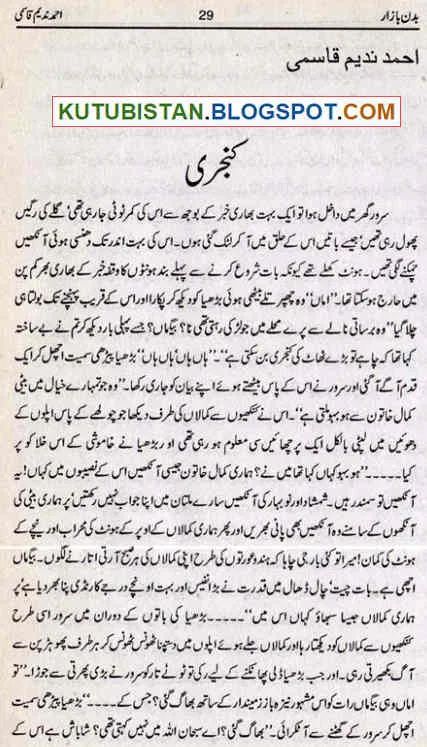 بدن بازار 29 احمد ندیم قاسمی
احمد ندیم قاسمی
KUTUBISTAN.BLOGSPOT.COM
کنجری
سرور گھر میں داخل ہوا تو ایک بہت بھاری خبر کے بوجھ سے اس کی کمر ٹوٹی جا رہی تھی' گلے کی رگیں
پھول رہی تھیں' جیسے باتیں اس کے حلق میں آ کر اٹک گئی ہوں۔ اس کی بہت اندر تک دھنسی ہوئی آنکھیں
چپکنے لگی تھیں۔ ہونٹ کھلے تھے کیونکہ بات شروع کرنے سے پہلے بند ہونٹوں کا وقفہ خبر کے بھاری بھرکم پن
میں حارج ہو سکتا تھا۔ ''اماں'' وہ چھپر تلے بیٹھی ہوئی بڑھیا کو دیکھ کر پکارا اور اس کے قریب پہنچنے تک بولتا ہی
چلا گیا ''وہ برساتی نالے سے پرے محلے میں جو لڑکی رہتی تھی نا؟ بیگماں؟ جسے پہلی بار دیکھ کر تم نے بے ساختہ
کہا تھا کہ چاہے تو بڑے ٹھاٹ کی کنجری بن سکتی ہے''۔ ''ہاں ہاں' ہاں ہاں'' بڑھیا پیڑھی سمیت اچھل کر ایک
قدم آگے آ گئی اور سرور نے اس کے پاس بیٹھتے ہوئے اپنے بیان کو جاری رکھا۔ ''وہ جو تمہارے خیال میں بیٹی
کمال خاتون سے ہو بہو ملتی ہے''۔ اس نے کنکھیوں سے کمالاں کی طرف دیکھا جو چولھے کے پاس اپلوں کے
دھوئیں میں لپٹی بالکل ایک پرچھائیں سی معلوم ہو رہی تھی اور بڑھیا نے خاموشی کے اس خلا کو پر
کیا۔۔۔۔۔''ہو بہو کہاں کہا تھا میں نے؟ ہماری کمال خاتون جیسی آنکھیں اس کے نصیبوں میں کہاں! یہ
آنکھیں تو سمندر ہیں۔ شمشاد اور نو بہار کی آنکھیں سارے ملتان میں اپنا جواب نہیں رکھتیں' پر ہماری بیٹی کی
آنکھوں کے سامنے وہ آنکھیں بھی پانی بھریں اور پھر ہماری کمالاں کے اوپر کے ہونٹ کی محراب اور نیچے کے
ہونٹ کی کمان! میرا تو کئی بار جی چاہا کہ ہندو عورتوں کی طرح اپنی کمالاں کی ہر صبح آرتی اتارنے لگوں۔ بیگماں
اچھی ہے۔ بات چیت' چال ڈھال میں قدرت نے بڑا نفیس اور بہت اونچے درجے کا رنڈی پنا بھر دیا ہے' پر
ہماری کمالاں جیسا سبھاؤ کہاں اس میں''۔۔۔۔۔ بڑھیا کی باتوں کے دوران میں سرور اسی طرح
کنکھیوں سے کمالاں کو دیکھتا رہا اور کمالاں جلے ہوئے اپلوں میں دستپنا ٹھونس ٹھونس کر ہر طرف پھوہڑ پن سے
آگ بکھیرتی رہی۔ اور جب بڑھیا ڈلی پھانکنے کے لیے رکی تو ٹوٹے تار کو سرور نے بڑی پھرتی سے جوڑا۔ ''تو
اماں وہی بیگماں رات کو اس مشہور نیزہ باز زمیندار کے ساتھ بھاگ گئی؟ جس کے۔۔۔۔'' بڑھیا پیڑھی سمیت
اچھل کر سرور کے گھٹنے سے آ ٹکرائی۔ ''بھاگ گئی؟ اے سبحان اللہ میں نہیں کہتی تھی؟ شاباش ہے اس کے